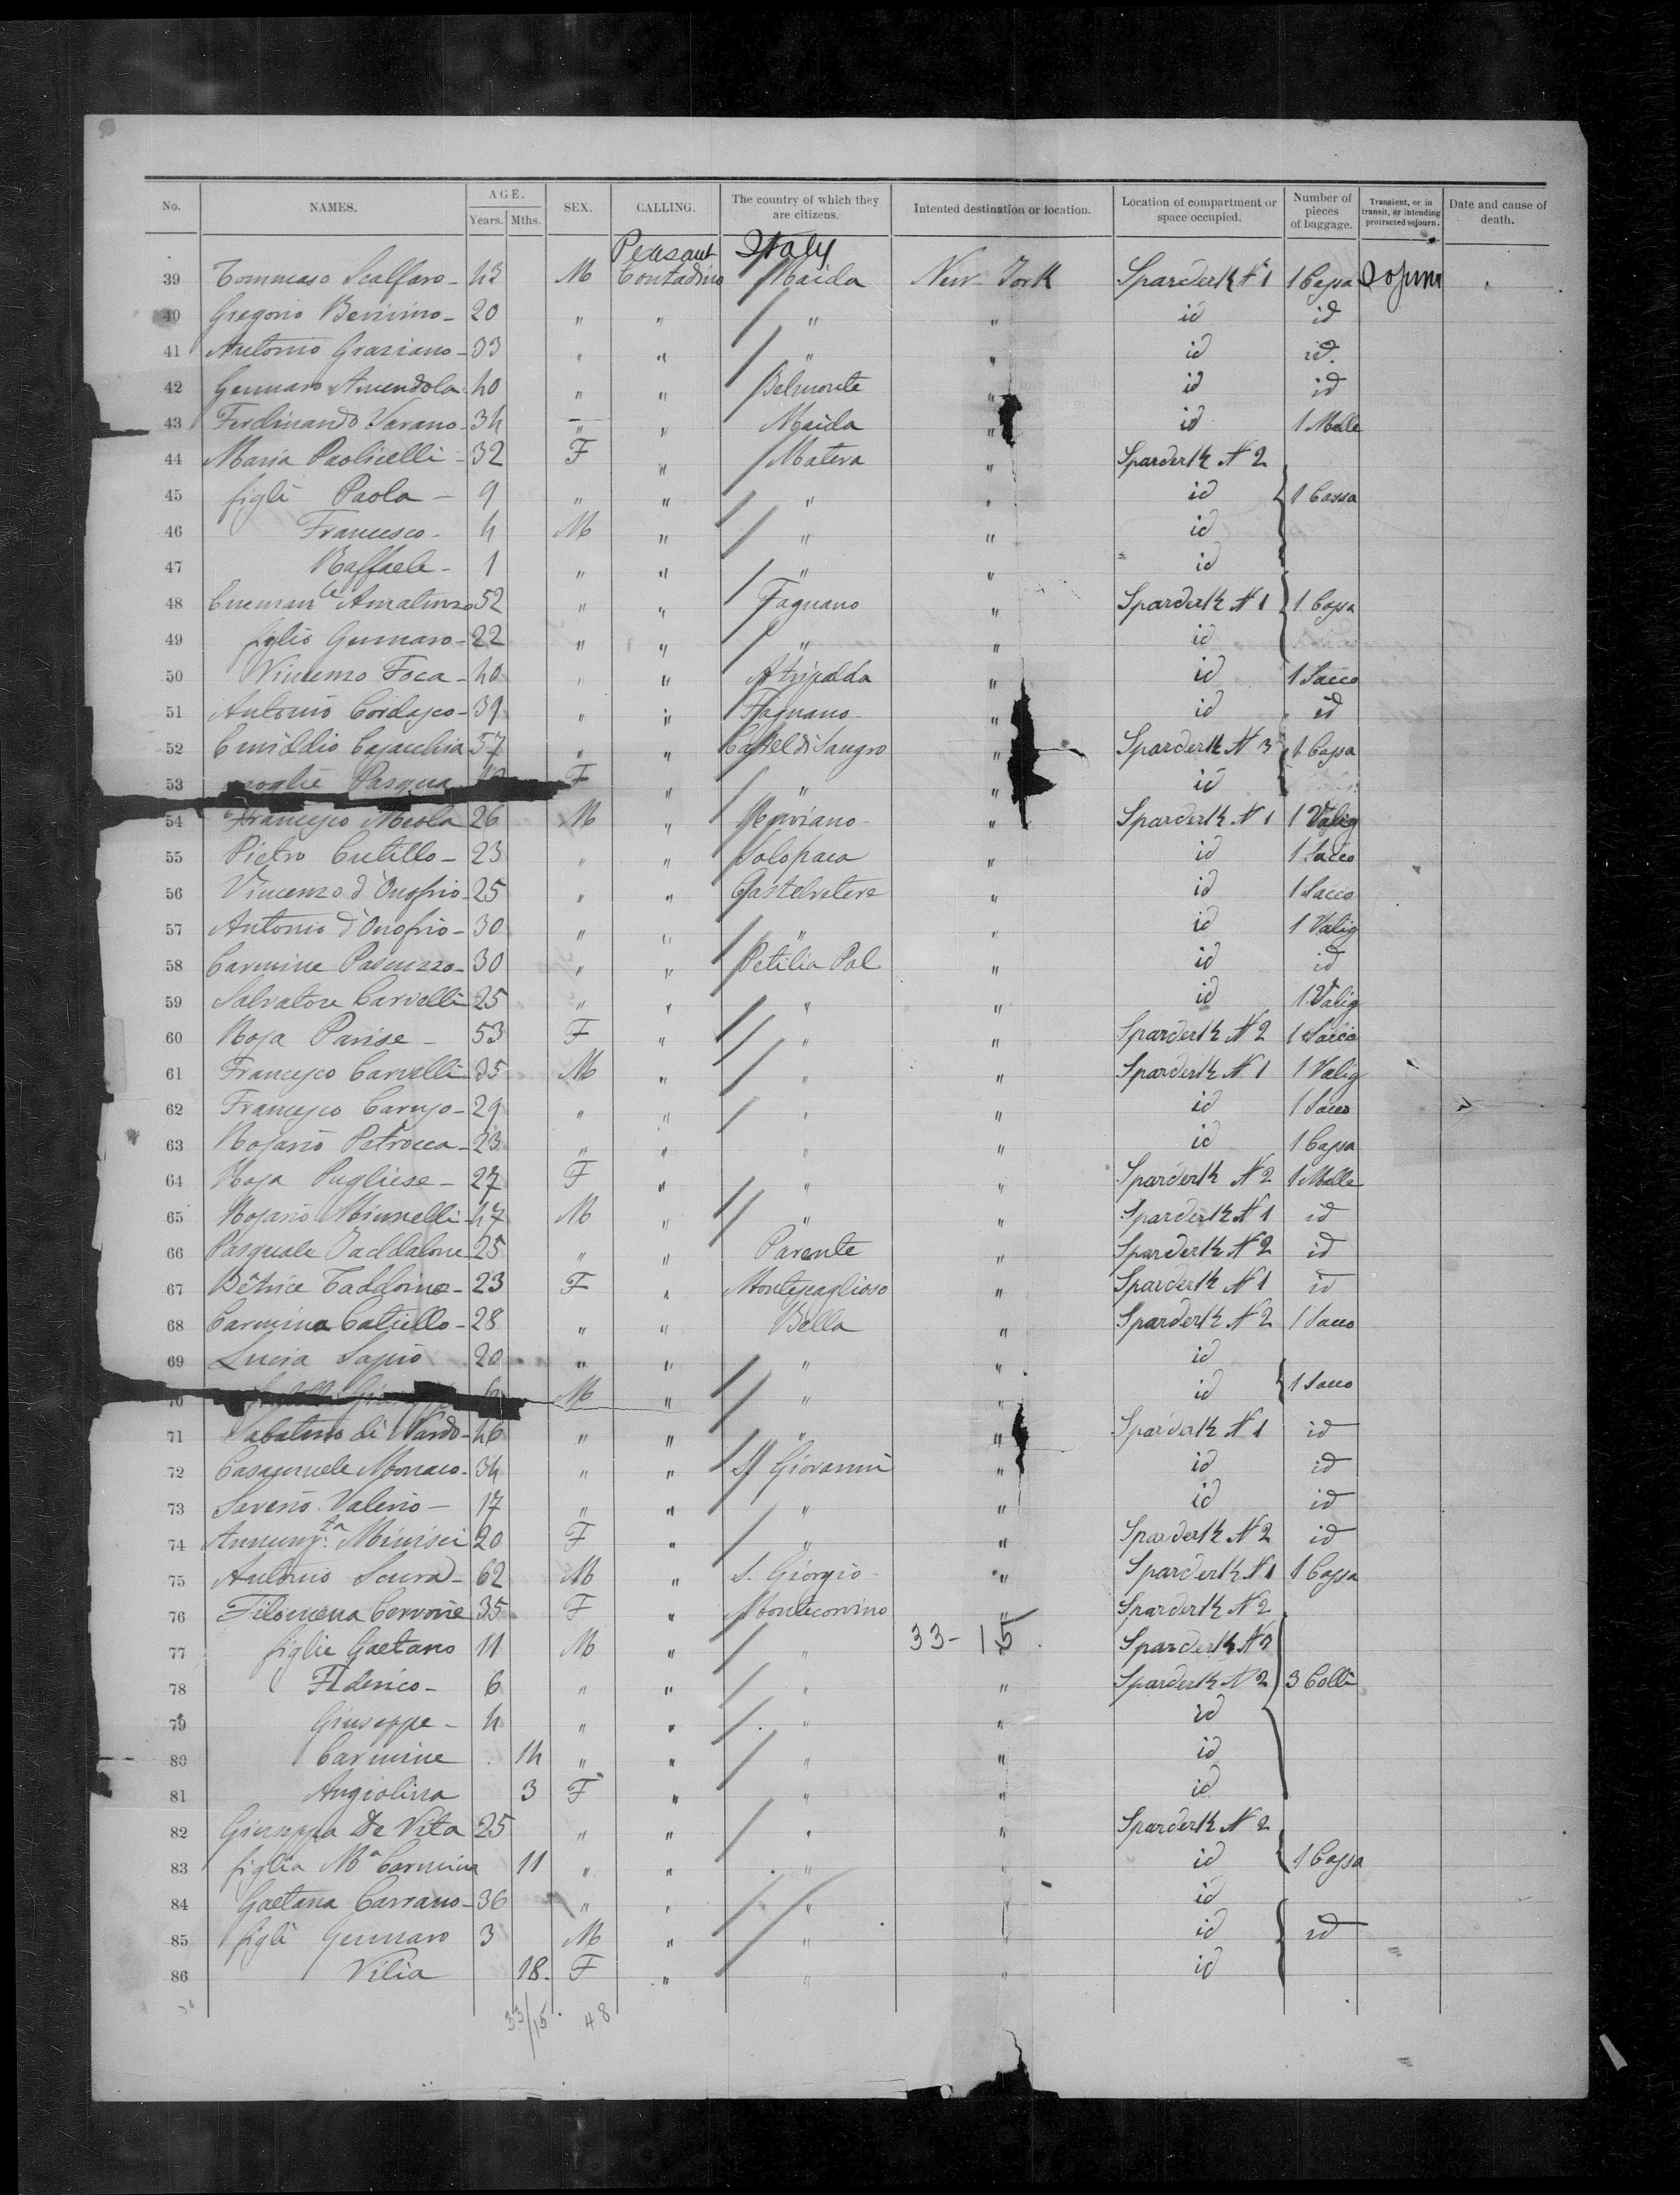 No. NAMES. AGE. Years. Mths. SEX. CALLING. The country of which they are citizens. Intented destination or location. Location of compartment or space occupied. Number of pieces of baggage. Transient, or in transit, or intending protracted sojourn. Date and cause of death.
Peasant Italy
39 Tommaso Scalfaro - 43 M Contadino Maida New-York Sparderk N 1 1 Cassa Sojourn
40 Gregorio - 20 " " " " id id
41 Antonio Graziano - 33 " " " " id id.
42 Gennaro Amendola - 40 " " Belmonte " id id
43 Ferdinando Varano - 34 " " Maida " id 1 Malle
44 Maria Paolicelli - 32 F " Matera " Sparderk N 2
45 figli Paola - 9 " " " " id 1 Cassa
46 Francesco - 4 M " " " id
47 Raffaele - 1 " " " " id
48 52 " " Fagnano " Sparderk N 1 1 Cassa
49 figlio Gennaro - 22 " " " " id
50 Vincenzo Foca - 40 " " Atripalda " id 1 Sacco
51 Antonio Cordasco - 39 " " Fagnano " id id
52 Emiddio Casacchia 57 " " Castel di Sangro " Sparderk N 3 1 Cassa
53 moglie Pasqua F " " " id
54 Francesco Meola 26 M " " Sparderk N 1 1 Valig
55 Pietro Cutillo - 23 " " Solopaca " id 1 Sacco
56 Vincenzo d'Onofrio - 25 " " Castelvetere " id 1 Sacco
57 Antonio d'Onofrio - 30 " " " " id 1 Valig
58 Carmine Pascuzzo - 30 " " Petilia Pol " id id
59 Salvatore Carvelli 25 " " " " id 1 Valig
60 Rosa Parise - 53 F " " " Sparderk N 2 1 Sacco
61 Francesco Carvelli - 35 M " " " Sparderk N 1 1 Valig
62 Francesco Caruso - 29 " " " " id 1 Sacco
63 Rosario Petrocca - 23 " " " " id 1 Cassa
64 Rosa Pugliese - 27 F " " " Sparderk N 2 1 Malle
65 Rosario Minnelli - 47 M " " " Sparderk N 1 id
66 Pasquale Taddalone - 25 " " Parente " Sparderk N 2 id
67 Betrice - 23 F " Montescaglioso " Sparderk N 1 id
68 Carmina Catiello - 28 " " Bella " Sparderk N 2 1 Sacco
69 Lucia Sapio 20 " " " " id
70 M " " " id 1 Sacco
71 Sabatino di Nardo - 46 " " " " Sparderk N 1 id
72 Monaco - 34 " " S. Giovanni " id id
73 Saverio Valerio - 17 " " " " id id
74 Minisci 20 F " " " Sparderk N 2 id
75 Antonio Scura - 62 M " S. Giorgio " Sparderk N 1 1 Cassa
76 Filomena Cervone 35 F " Montecorvino " Sparderk N 2
77 figlie Gaetano 11 M " " 33 - 15 Sparderk N 3
78 Federico - 6 " " " " Sparderk N 2 3 Colli
79 Giuseppe - 4 " " " " id
80 Carmine 14 " " " " id
81 Angiolina 3 F " " " id
82 Giuseppa De Vita 25 " " " " Sparderk N 2
83 figlia Ma Carmina 11 " " " " id 1 Cassa
84 Gaetana Carrano - 36 " " " " id
85 figli Gennaro 3 M " " " id id
86 Vilia 18. F " " " id
33/15 48